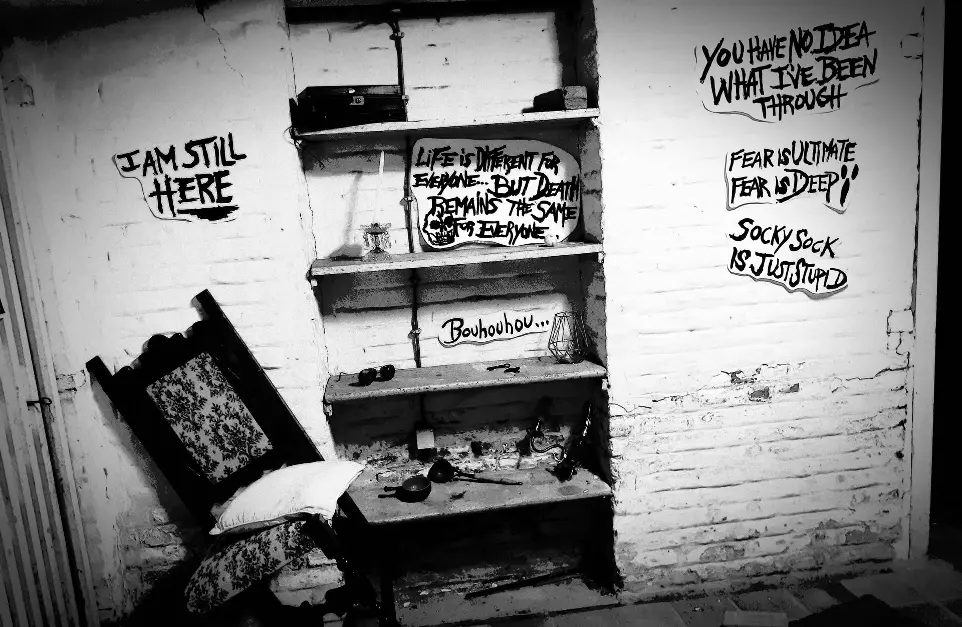 I AM STILL
HERE
LIFE is DIFFERENT FOR
EVERYONE... BUT DEATH
REMAINS THE SAME
FOR EVERYONE..
Bouhouhou...
YOU HAVE NO IDEA
WHAT I'VE BEEN
THROUGH
FEAR IS ULTIMATE
FEAR IS DEEP!!
SOCKY SOCK
IS JUST STUPID